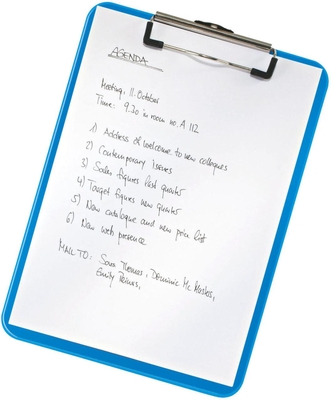 AGENDA
Meeting: 11. October
Time: 9.30 in room no. A 112
1) Address of welcome to new colleagues
2) Contemporary issues
3) Sales figures last quarter
4) Target figures new quarter
5) New catalogue and new price list
6) New web presence
MAIL TO: Sara Thomas, Dominic Mc Masters,
Emily